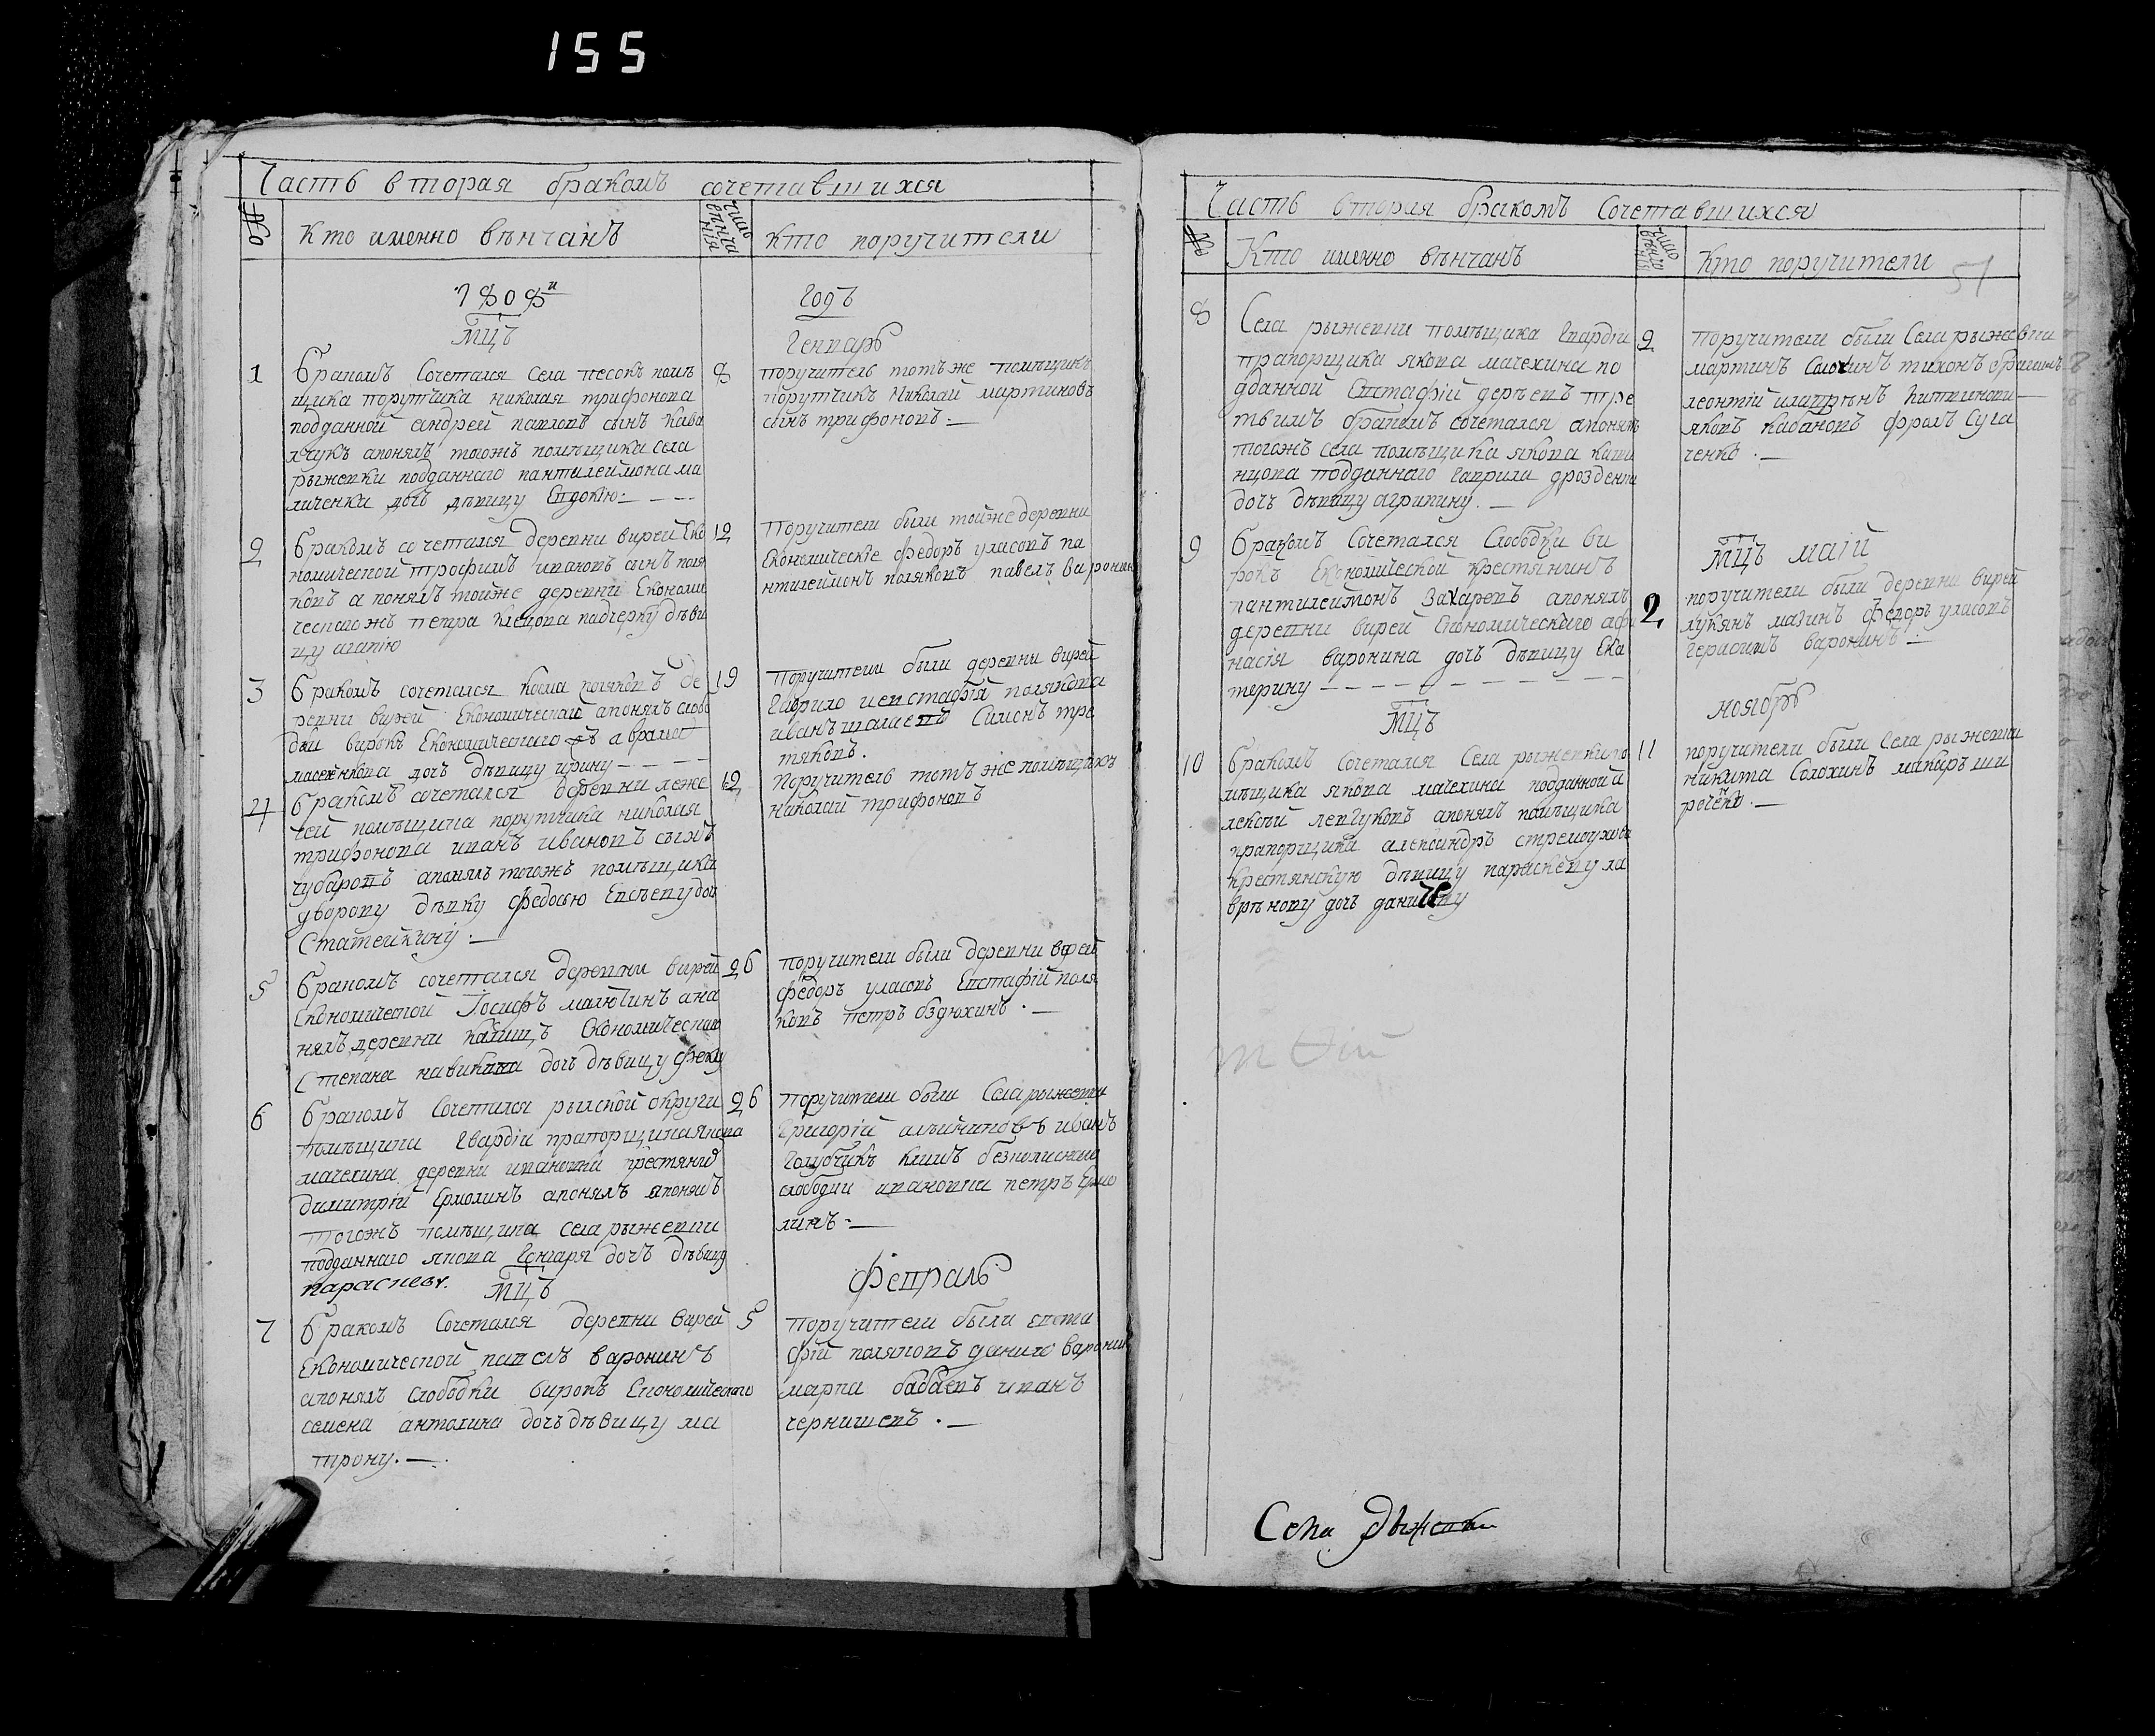 155
Часть вторая бракомъ сочетавшихся
№
Кто именно вѣнчанъ
число вѣнчания
кто поручители
1808и
Годъ
мцъ
Генварь
1
Бракомъ Сочетался Села песокъ помѣ
щика порутчика николая трифонова
подданной андрей павловъ сынъ
апонялъ тогожъ помѣщика села
рыжевки подданнаго пантилеймона ма
личенка дочь дѣвицу Евдокию
8
поручитель тотъ же помѣщикъ
порутчикъ Николай мартиновъ
сынъ трифоновъ.
2
Бракомъ сочетался деревни вирей Еко
номической трофимъ ивановъ сынъ поля
ковъ а понялъ тойже деревни Економи
ческагожъ петра падчерку дѣви
цу агапію
12
Поручители были тойже деревни
Економическіе федоръ уласовъ па
нтилеймонъ поляковъ павелъ варонин
3
Бракомъ сочетался косма поляковъ де
ревни вирей Економической апонялъ слобо
дки вирокъ Економическаго
дочь дѣвицу ирину
19
поручители были деревни вирей
Гаврило иевстафія поляковы
иванъ Симонъ тре
тяковъ.
4
Бракомъ сочетался деревни леже
чей помѣщика порутчика николая
трифонова иванъ ивановъ сынъ
чубаровъ апонялъ тогожъ помѣщика
дворову дѣвку федосью Евсѣеву доч
Статейкину.
12
Поручитель тотъ же помѣщикъ
николай трифоновъ
5
Бракомъ сочетался деревни вирей
Економической Іосифъ малютинъ апо
нялъ деревни Економического
Степана дочь дѣвицу феклу
26
поручители были деревни вирей
федоръ уласовъ Евстафій поля
ковъ петръ бздюхинъ.
6
Бракомъ Сочетался рылской округи
помѣщика Гвардіи прапорщика якова
мачехина деревни ивановки крестянин
димитрій Ермолинъ апонялъ апонялъ
тогожъ помѣщика села рыжевки
подданнаго якова Гончаря дочь дѣвицу
параскеву.
26
Поручители были Села рыжевки
Григорій иванъ
Голубчикъ климъ
слободки ивановки петръ Ермо
линъ.
мцъ
Февраль
7
Бракомъ Сочетался деревни вирей
Економической павелъ варонинъ
апонялъ слободки вирокъ Економического
семена антохина дочь дѣвицу ма
трону.
5
Поручители были евста
фій поляковъ данило варонин
марка бабаевъ иванъ
чернишевъ.
Часть вторая бракомъ Сочетавшихся
№
Кто именно вѣнчанъ
число вѣнчания
Кто поручители
51
8
Села рыжевки помѣщика Гвардіи
прапорщика якова мачехина по
дданной Евстафій деркевъ тре
твимъ бракомъ сочетался апонялъ
тогожъ села помѣщика якова
подданного Гаврила дрозденка
дочь дѣвицу агрипину.
2
поручители были Села рыжевки
мартинъ Солохинъ тихонъ
леонтій
яковъ кабановъ фролъ Суга
ченко.
9
Бракомъ Сочетался Слободки ви
рокъ Економической крестянинъ
пантилеймонъ Захаревъ апонялъ
деревни вирей Економическаго афа
насія варонина дочь дѣвицу Ека
терину
мцъ маій
2
поручители были деревни вирей
лукянъ мазинъ федоръ уласовъ
Герасимъ варонинъ.
мцъ
ноябрь
10
Бракомъ сочетался Села рыжевки по
мѣщика якова мачехина подданной а
лексѣй левчуковъ апонялъ помѣщика
прапорщика александръ стремоухова
крестянскую дѣвицу параскеву ла
врѣнову дочь
11
поручители были Села рыжевки
никита Солохинъ макаръ ши
роченко.
Села Рыжевки